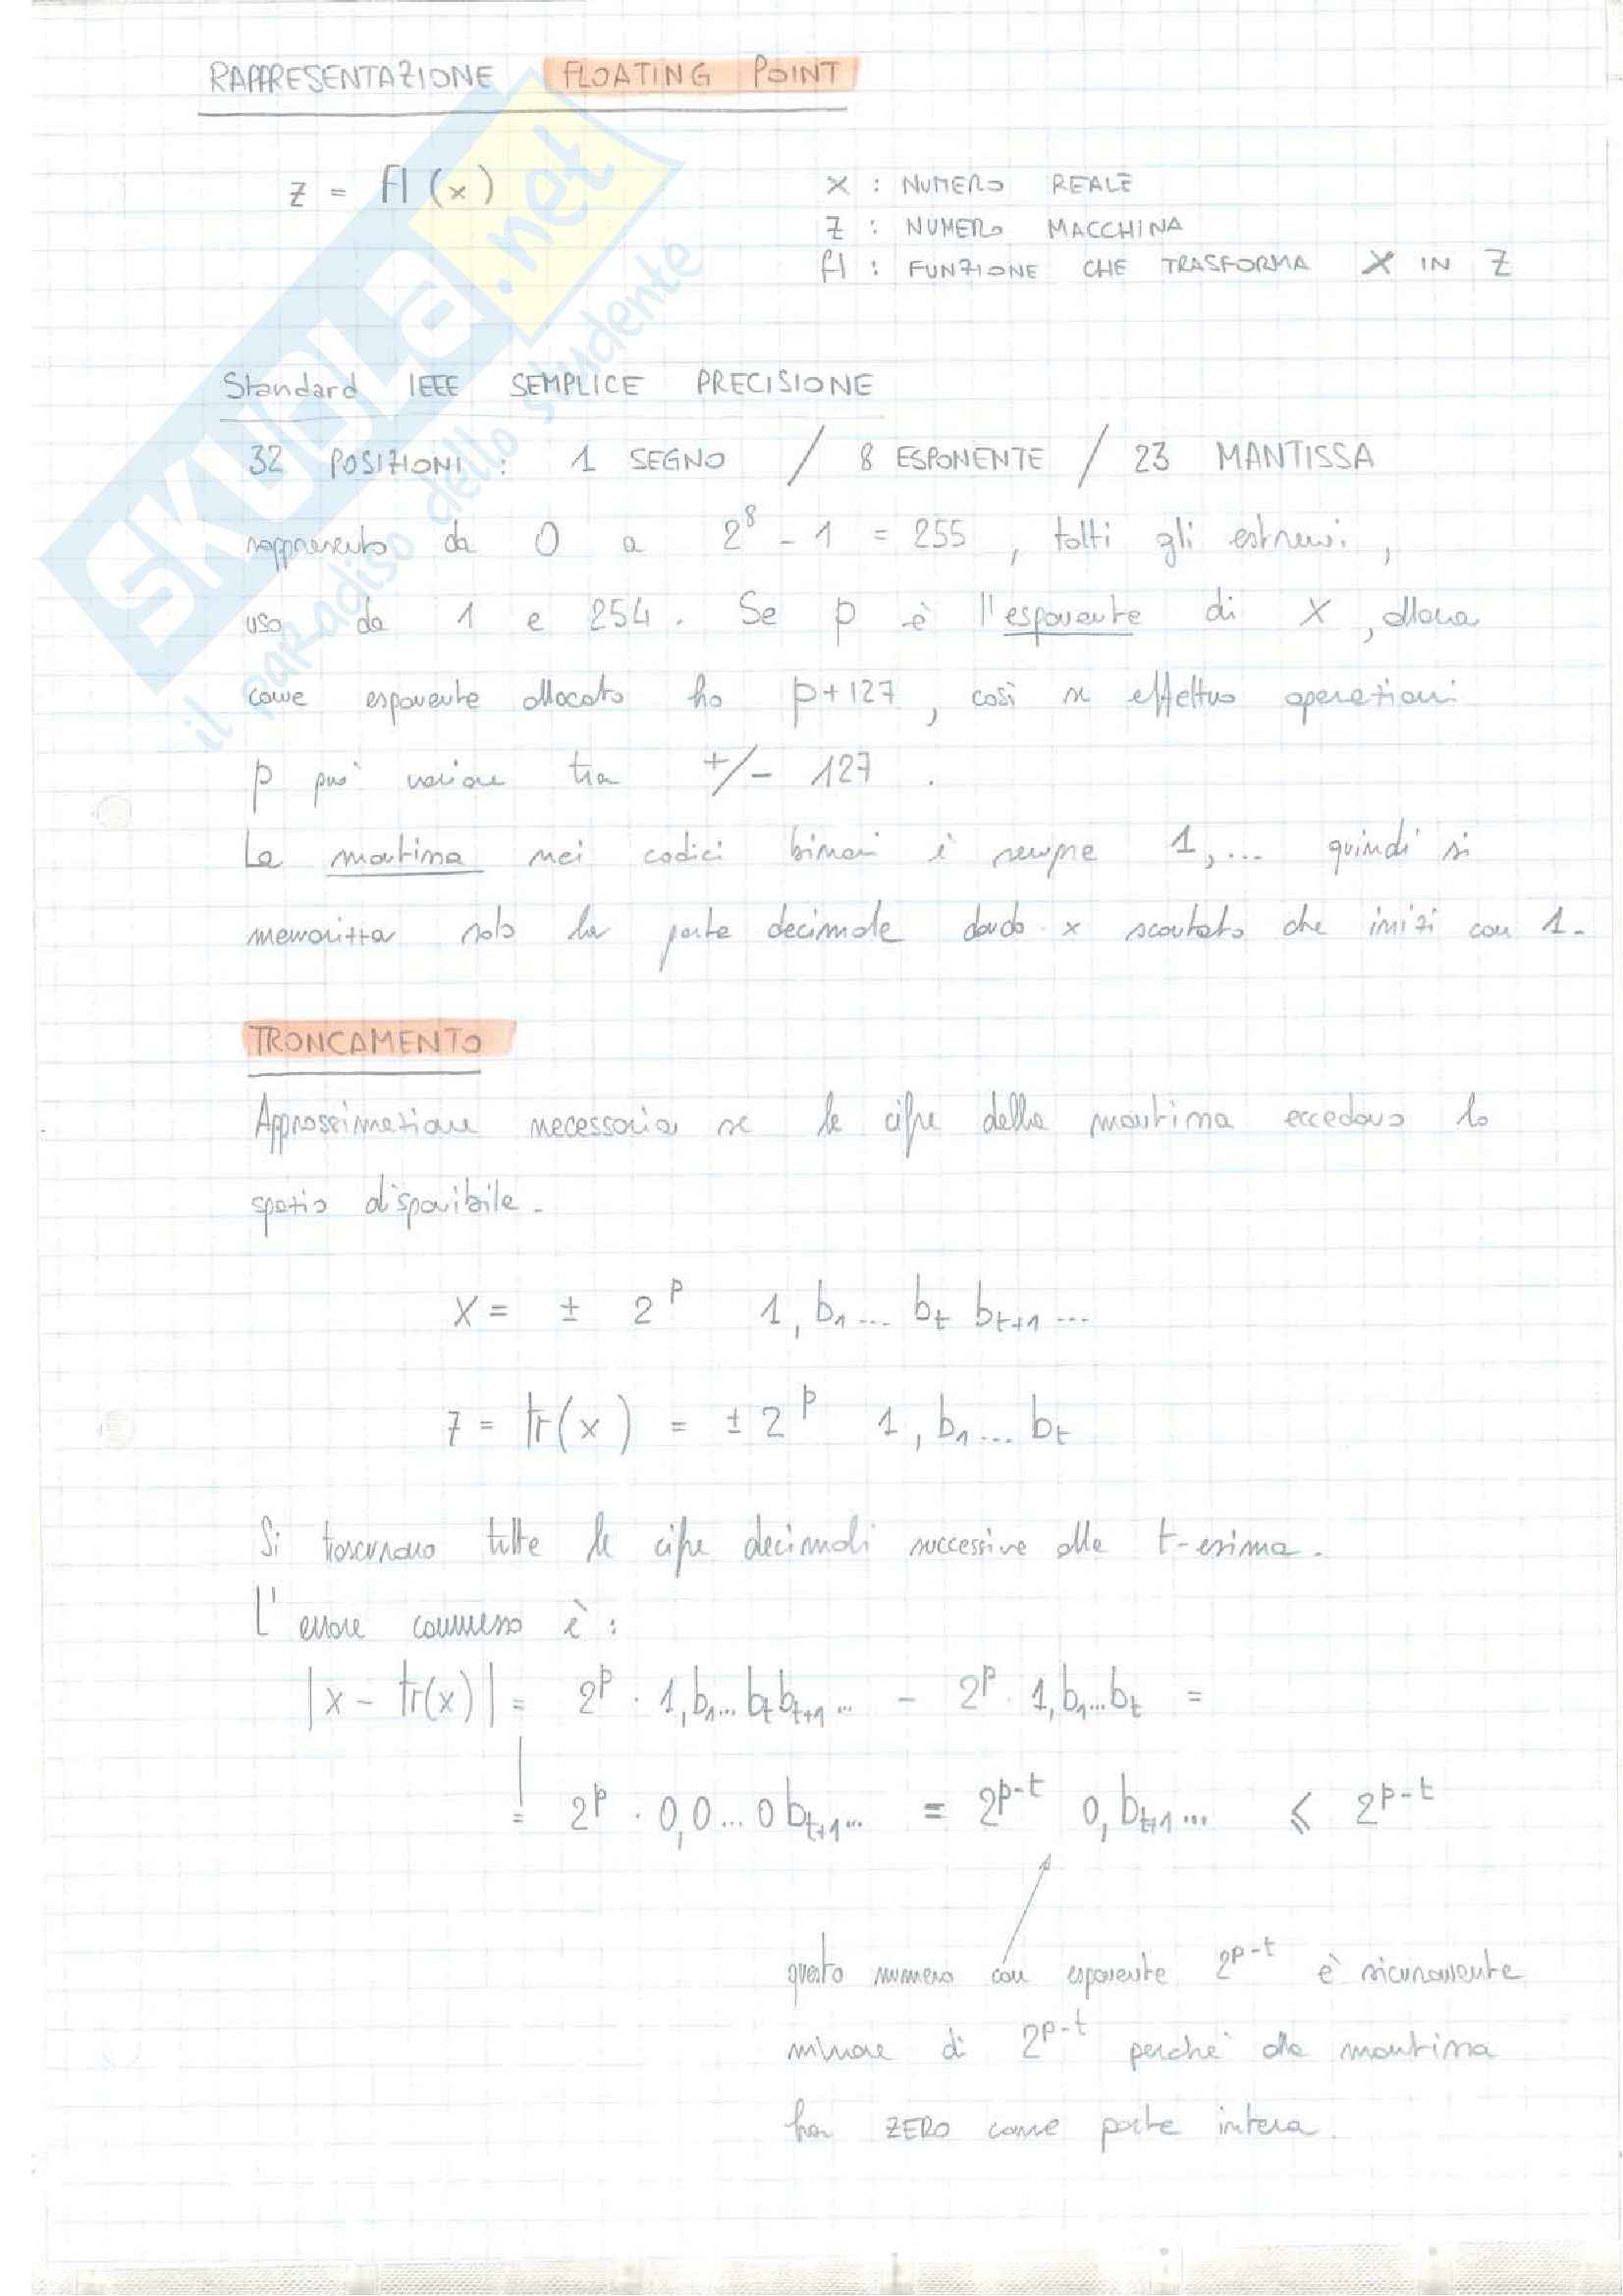 RAPPRESENTAZIONE FLOATING POINT
z = fl (x)
x : NUMERO REALE
z : NUMERO MACCHINA
fl : FUNZIONE CHE TRASFORMA X IN Z
Standard IEEE SEMPLICE PRECISIONE
32 POSIZIONI : 1 SEGNO / 8 ESPONENTE / 23 MANTISSA
rappresento da 0 a 2⁸ - 1 = 255 , tolti gli estremi ,
uso da 1 e 254 . Se p è l'esponente di X , allora
come esponente allocato ho p+127 , così se effettuo operazioni
p può variare tra +/- 127 .
La mantissa nei codici binari è sempre 1,... quindi si
memorizza solo la parte decimale dando x scontato che inizi con 1.
TRONCAMENTO
Approssimazione necessaria se le cifre della mantissa eccedono lo
spazio disponibile.
X = ± 2ᵖ 1, b₁ ... bₜ bₜ₊₁ ...
z = tr(x) = ± 2ᵖ 1, b₁ ... bₜ
Si trascurano tutte le cifre decimali successive alla t-esima.
L'errore commesso è :
|x - tr(x)| = 2ᵖ · 1,b₁...bₜbₜ₊₁... - 2ᵖ · 1,b₁...bₜ =
= 2ᵖ · 0,0...0bₜ₊₁... = 2ᵖ⁻ᵗ 0,bₜ₊₁... ⩽ 2ᵖ⁻ᵗ
questo numero con esponente 2ᵖ⁻ᵗ è sicuramente
minore di 2ᵖ⁻ᵗ perché alla mantissa
ha ZERO come parte intera.
SKUOLA.net
il paradiso dello studente